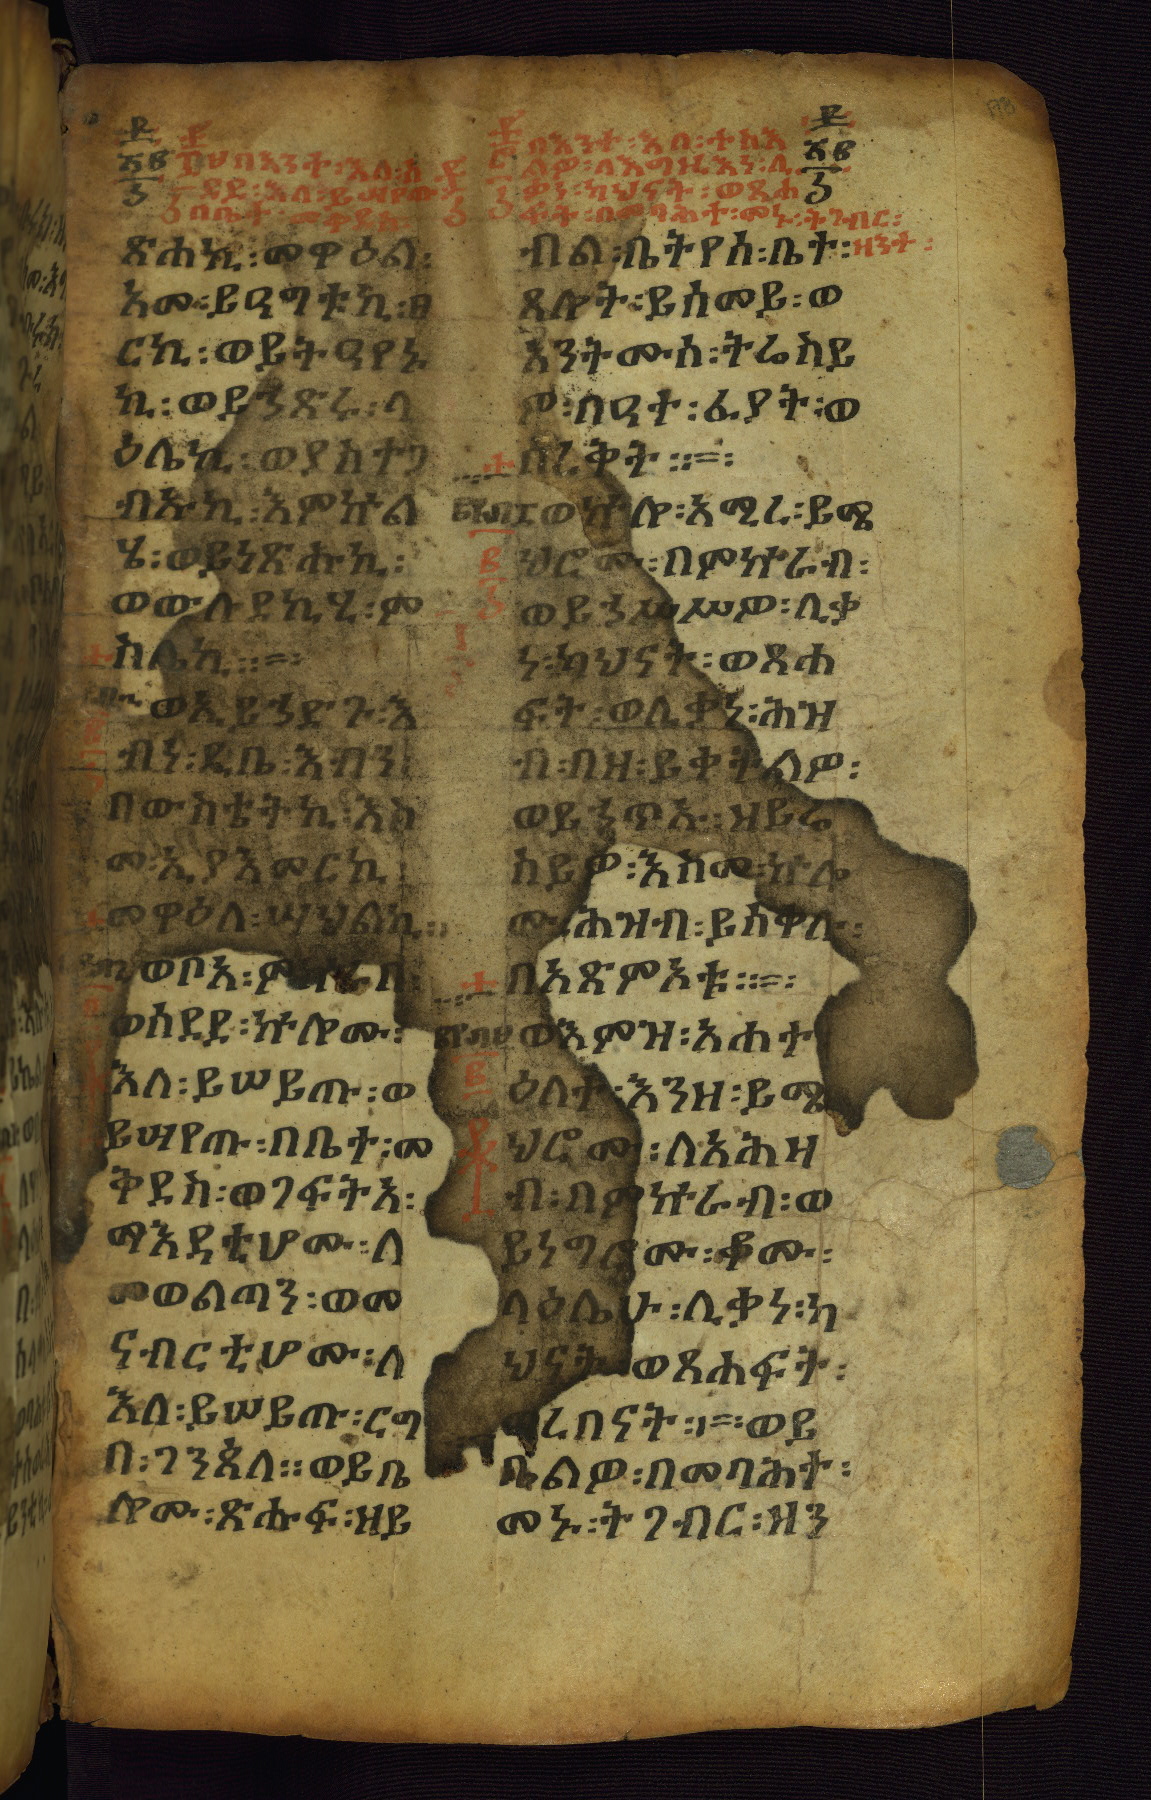 ጽሐኪ፡መዋዕል፡
አመ፡ይዔግቱኪ፡ፀ
ርኪ፡ወይትዔየኑ
ኪ፡ወይኄጽሩ፡ላ
ዕሌኪ፡ወያስተጋ
ብኡኪ፡እምኵል
ሄ፡ወይነጽሑኪ፡
ወውሉደኪሂ፡ም
ስሌኪ፡፡፡
ወኢይኀድጉ፡እ
ብነ፡ዲቤ፡እብን፡
በውስቴትኪ፡እስ
መ፡ኢያእመርኪ
መዋዕለ፡ሣህልኪ፡፡
ወቦአ፡ምኵራበ፡
ወሰደደ፡ኵሎሙ፡
እለ፡ይሠይጡ፡ወ
ይሣየጡ፡በቤተ፡መ
ቅደስ፡ወገፍትአ፡
ማእዳቲሆሙ፡ለ
መወልጣን፡ወመ
ናብርቲሆሙ፡ለ
እለ፡ይሠይጡ፡ርግ
በ፡ገንጰለ፡፡ወይቤ
ሎሙ፡ጽሑፍ፡ዘይ
በእንተ፡እለ፡ተስእ
ልዎ፡ለእግዚእነ፡ሊ
ቃነ፡ካህናት፡ወጸሐ
ፍት፡በመባሕተ፡መኑ፡ትገብር፡
ዘንተ፡
ብል፡ቤትየሰ፡ቤተ፡
ጸሎት፡ይሰመይ፡ወ
አንትሙሰ፡ትሬስይ
ዎ፡በዓተ፡ፈያት፡ወ
ሰረቅት፡፡፡
ወኵሎ፡አሚረ፡ይሜ
ህሮሙ፡በምኵራብ፡
ወይኀሥሥዎ፡ሊቃ
ነ፡ካህናት፡ወጸሐ
ፍት፡ወሊቃነ፡ሕዝ
ብ፡በዘ፡ይቀትልዎ፡
ወይኀጥኡ፡ዘይሬ
ስይዎ፡እስመ፡ኵሎ
ሙ፡ሕዝብ፡ይሰቀሉ፡
በአጽምኦቱ፡፡፡
ወእምዝ፡አሐተ
ዕለተ፡እንዘ፡ይሜ
ህሮሙ፡ለአሕዛ
ብ፡በምኵራብ፡ወ
ይነግሮሙ፡ቆሙ፡
ላዕሌሁ፡ሊቃነ፡ካ
ህናት፡ወጸሐፍት፡
ረበናት፡፡ወይ
ቤልዎ፡በመባሕተ፡
መኑ፡ትገብር፡ዘን